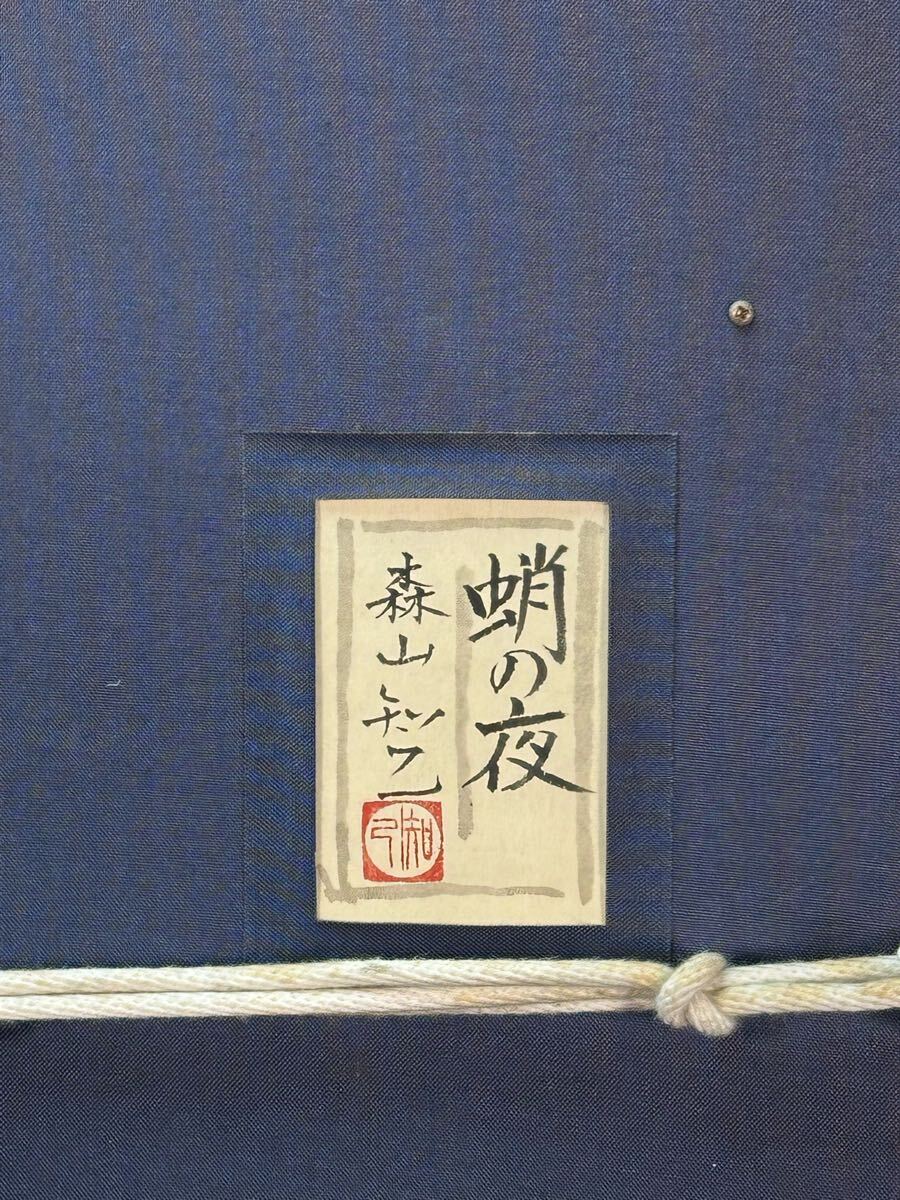 蛸の夜
森山知己
知己